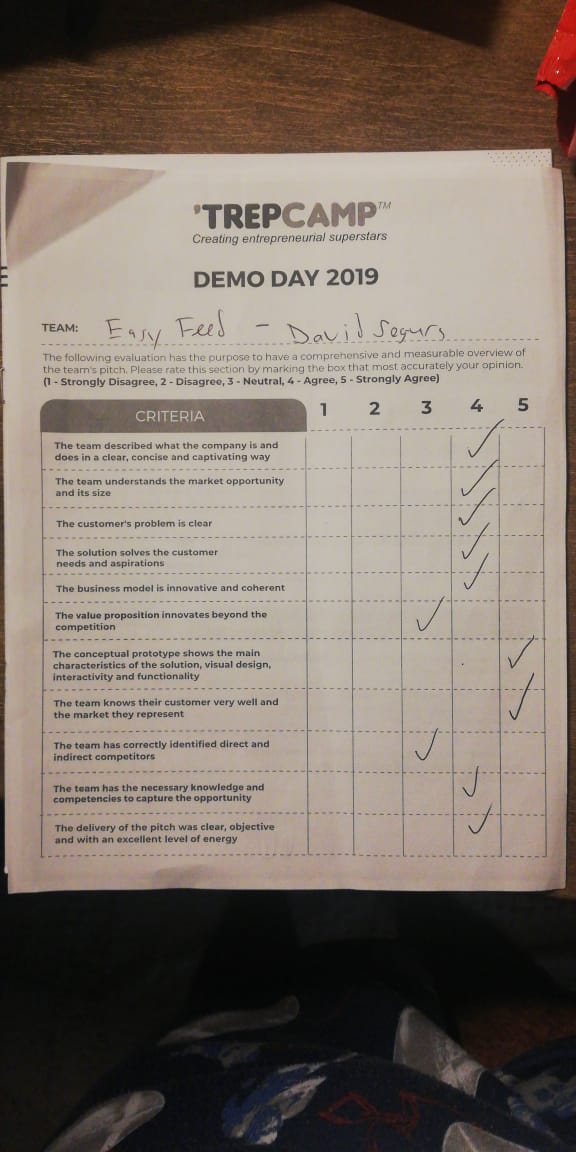 'TREPCAMP™
Creating entrepreneurial superstars
DEMO DAY 2019
TEAM: Easy Feed - David Segurs
The following evaluation has the purpose to have a comprehensive and measurable overview of
the team's pitch. Please rate this section by marking the box that most accurately your opinion.
(1 - Strongly Disagree, 2 - Disagree, 3 - Neutral, 4 - Agree, 5 - Strongly Agree)
CRITERIA 1 2 3 4 5
The team described what the company is and
does in a clear, concise and captivating way
The team understands the market opportunity
and its size
The customer's problem is clear
The solution solves the customer
needs and aspirations
The business model is innovative and coherent
The value proposition innovates beyond the
competition
The conceptual prototype shows the main
characteristics of the solution, visual design,
interactivity and functionality
The team knows their customer very well and
the market they represent
The team has correctly identified direct and
indirect competitors
The team has the necessary knowledge and
competencies to capture the opportunity
The delivery of the pitch was clear, objective
and with an excellent level of energy